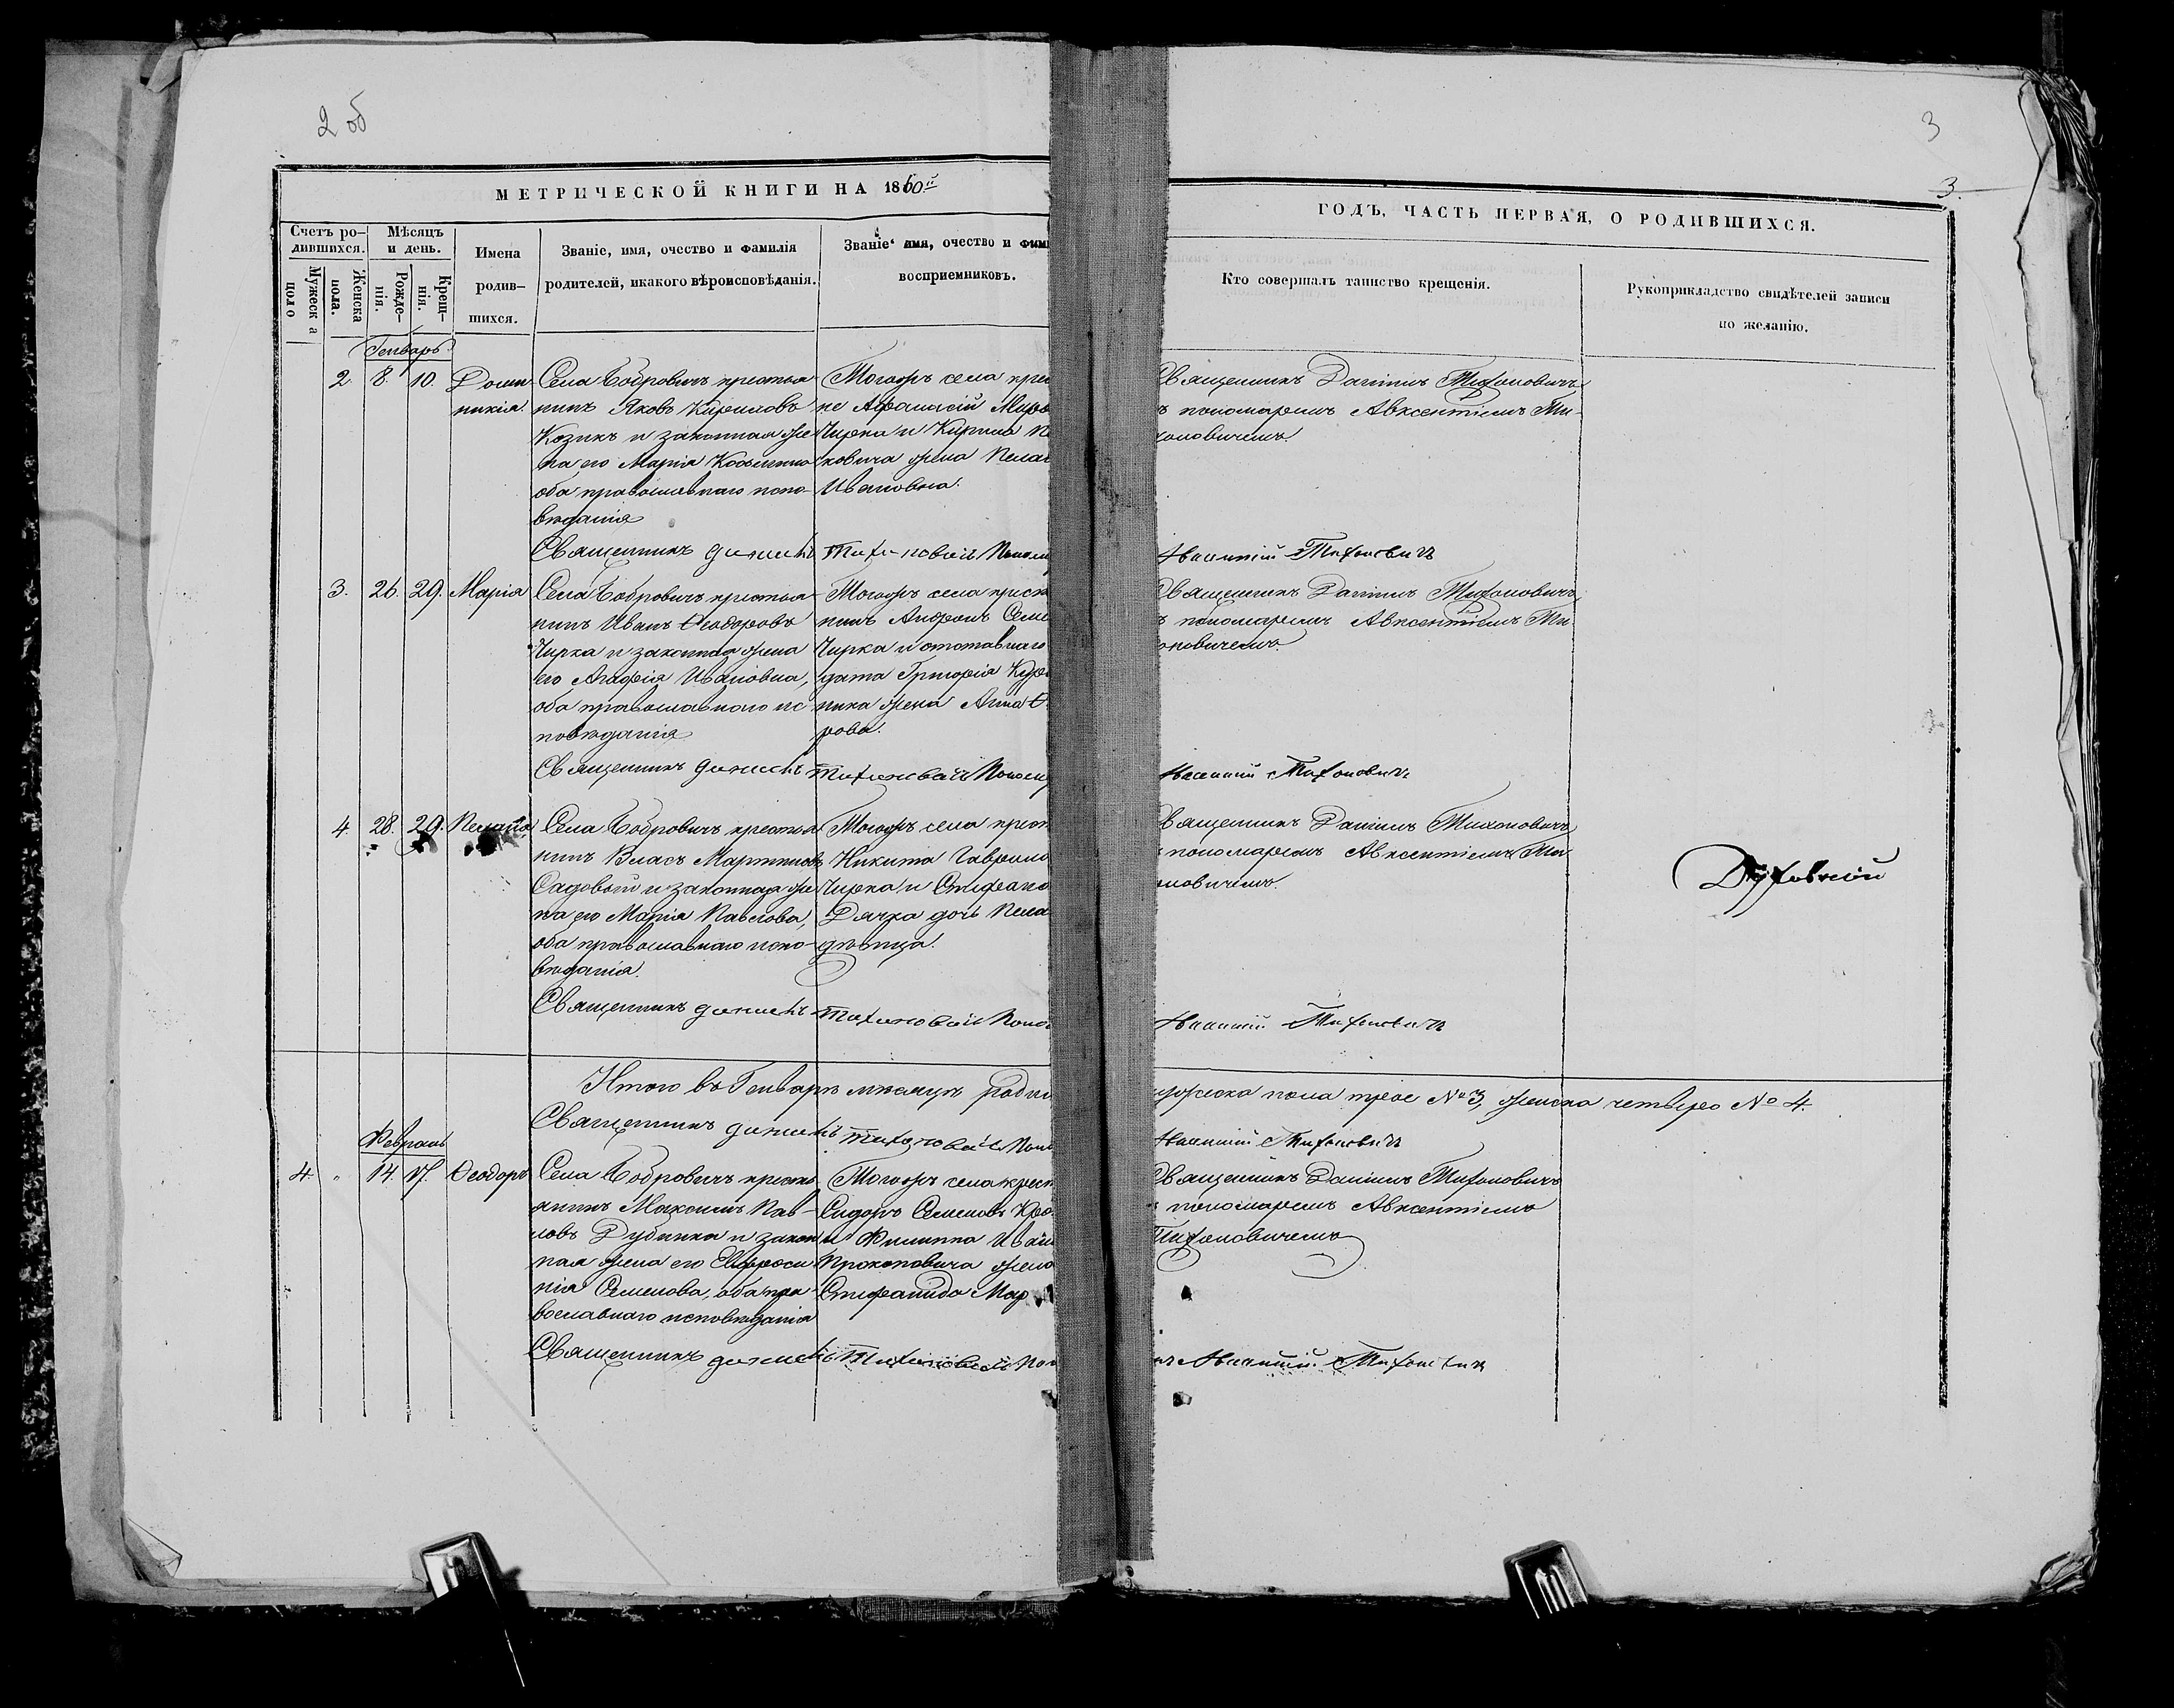 2 об
3
3.
МЕТРИЧЕСКОЙ КНИГИ НА 1860й
ГОДЪ, ЧАСТЬ ПЕРВАЯ, О РОДИВШИХСЯ.
Счетъ ро-
дившихся.
Мѣсяцъ
и день.
Мужеск а
поло
Женска
пола.
Рожде-
нія.
Крещ-
нія.
Имена
родив-
шихся.
Званіе, имя, очество и фамилія
родителей, икакого вѣроисповѣданія.
Званіе имя, очество и фами
восприемниковъ.
Кто совершалъ таинство крещенія.
Рукоприкладство свидѣтелей записи
по желанію.
Генварь
2. 8. 10. Домни
никія.
Села Бобровичъ крестья
нинъ Яковъ Кириловъ
Козикъ и законная же
на его Марія
оба православнаго испо-
вѣданія
Тогожъ села крес
не Афанасій Миро
Чирка и Кирила
ковича жена Пелаг
Ивановна.
Священникъ Даниилъ Тихоновичъ
ъ пономаремъ Авксентіемъ Ти-
хоновичемъ.
Священникъ Даниилъ Тихоновичъ Поном
Авксентій Тихоновичъ
3. 26. 29. Марія
Села Бобровичъ крестья
нинъ Иванъ Ѳеодоровъ
Чирка и законная жена
его Агафія Ивановна,
оба православнаго ис
повѣданія
Тогожъ села крест
нинъ Андрей Семе
Чирка и отставнаго
дата Григорія
ника жена Анна Ѳ
рова.
Священникъ Даниилъ Тихоновичъ
ъ пономаремъ Авксентіемъ Ти
оновичемъ.
Священникъ Даниилъ Тихоновичъ Поном
Авксентій Тихоновичъ
4. 28. 29. Пелагія
Села Бобровичъ крестья
нинъ Власъ Мартиновъ
Садовый и законная же
на его Марія Павлова,
оба православнаго испо-
вѣданія.
Тогожъ села крест
Никита Гаврило
Чирка и Стефано
Дячка дочь Пела
дѣвица.
Священникъ Даниилъ Тихоновичъ
пономаремъ Авксентіемъ Ти
оновичемъ.
Духовной
Священникъ Даниилъ Тихоновичъ Поно
Авксентій Тихоновичъ
Итого въ Генварѣ мѣсяцѣ роди
мужеска пола трое №3, женска четверо № 4.
Священникъ Даниилъ Тихоновичъ Поно
Авксентій Тихоновичъ
Февраль
4. " 14. 17. Ѳеодоръ
Села Бобровичъ кресть
янинъ Максимъ Пав-
ловъ Дубинка и закон
ная жена его Евфроси
нія Семенова, оба пра-
вославнаго исповѣданія
Тогожъ села крест
Сидоръ Семеновъ
и Филиппа Иван
Прокоповича жена
Стефанида Мар
Священникъ Даниилъ Тихоновичъ
пономаремъ Авксентіемъ
Тихоновичемъ
Священникъ Даниилъ Тихоновичъ Пон
Авксентій Тихоновичъ